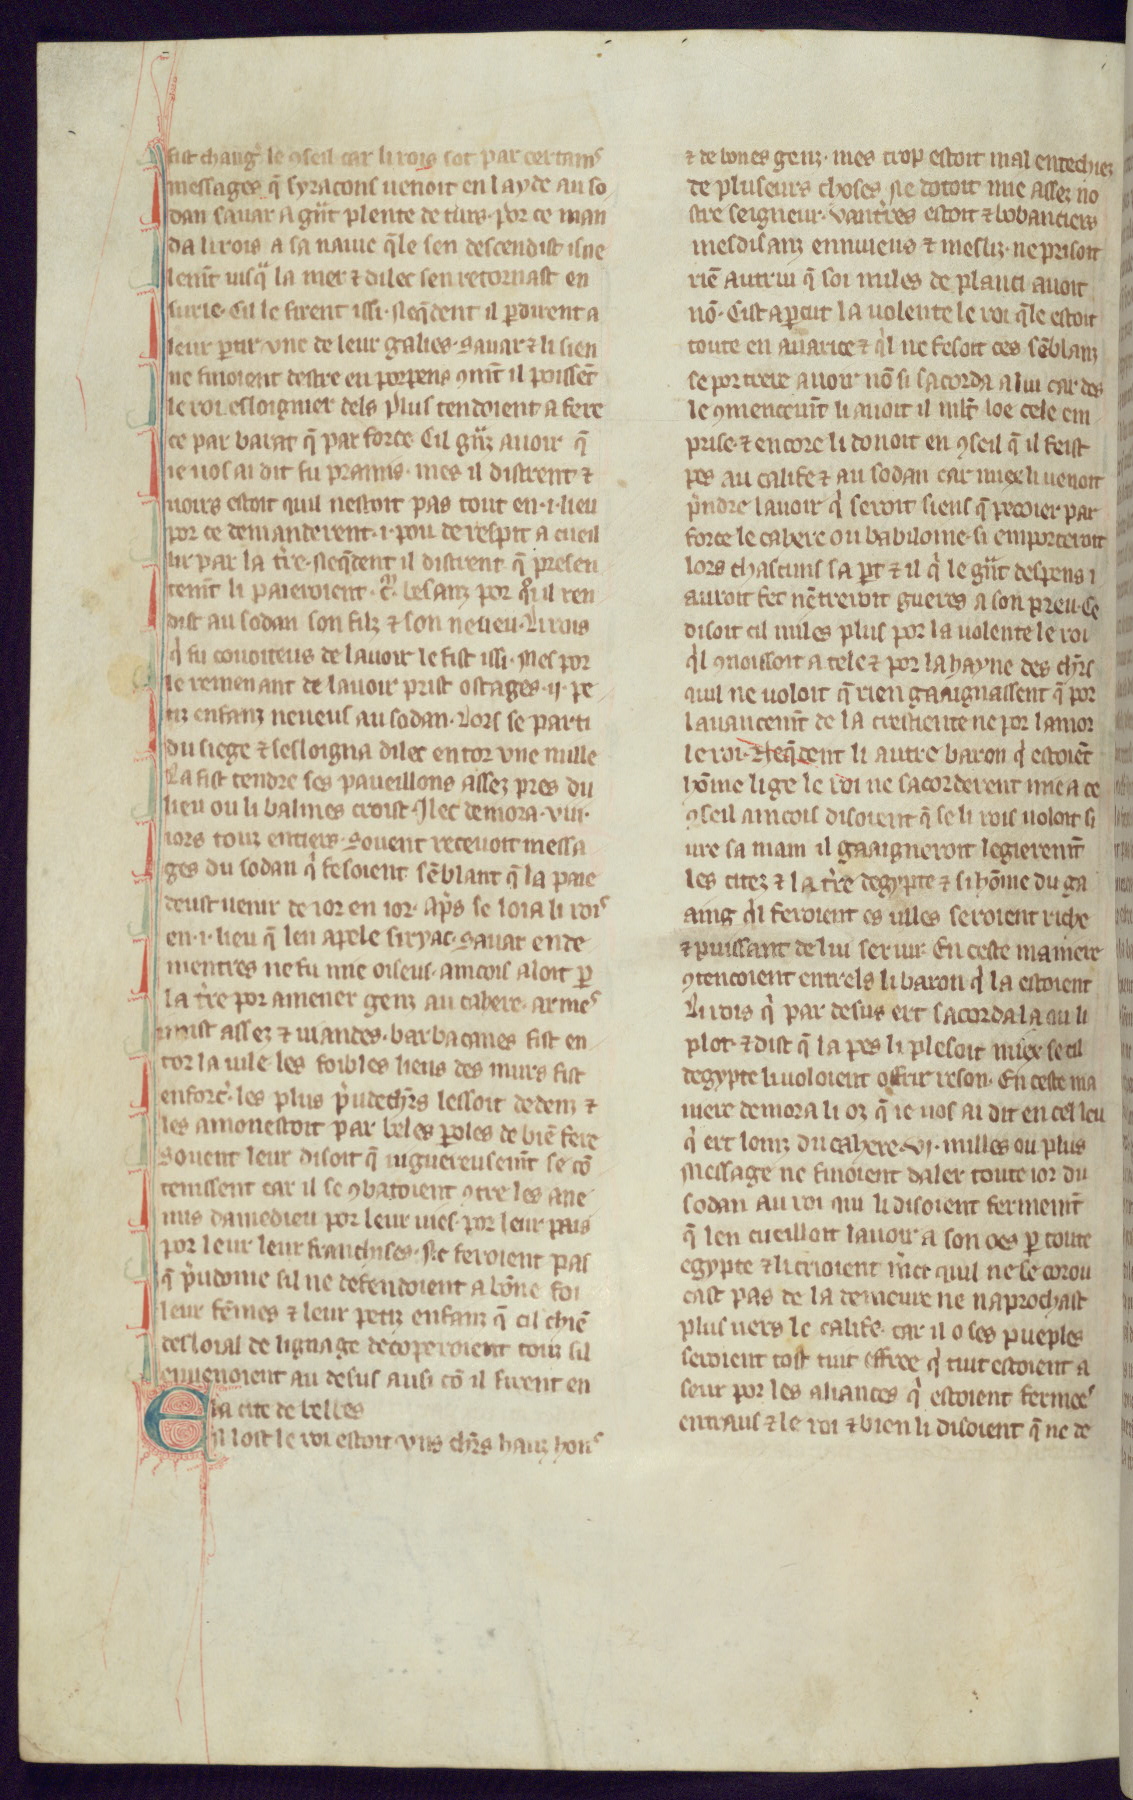 fist changr̉ le ꝯseil car li rois sot par certains
messages q̃ syracons uenoit en layde au so
dan sauar a gñt plente de turs. por ce man
da li rois a sa nauie q̃le sen descendist isne
lem̃t iusq̃ la mer ⁊ dilec sen retornast en
surie. Cil le firent issi. Neq̃dent il ꝑdirent a
leur ꝑtir vne de leur galies. Sauar ⁊ li sien
ne finoient destre en porpens ꝯm̃t il poissẽt
le roi esloignier dels plus tendoient a fere
ce par barat q̃ par force. Cil gñz auoir q̃
ie uos ai dit fu pramis. mes il distrent ⁊
uoirs estoit quil nestoit pas tout en .i. lieu
por ce demanderent .i. pou de respit a cueil
lir par la t̉re. Neq̃dent il distrent q̃ presen
tem̃t li paieroient .cͫ. besanz por q̃il ren
dist au sodan son filz ⁊ son neueu. Li rois
q̉ fu couoiteus de lauoir le fist issi. Mes por
le remenant de lauoir prist ostages .ij. pe
tiz enfanz neueus au sodan. Lors se parti
du siege ⁊ sesloigna dilec entor vne mille
La fist tendre ses paueillons assez pres du
lieu ou li balmes croist. Ilec demora .viii.
iors touz entiers. Souent receuoit messa
ges du sodan q̉ fesoient sẽblant q̃ la paie
deust uenir de ior en ior. ap̃s se loia li rois
en .i. lieu q̃ len apele siryac. Sauar ende
mentres ne fu mie oiseus. aincois aloit ꝑ
la t̉re por amener genz au cahere. armes
mist assez ⁊ uiandes. barbacanes fist en
tor la uile les foibles lieus des murs fist
enforc̉. les plus p̉udech̉rs lessoit dedenz ⁊
les amonestoit par beles ꝑoles de biẽ fere
Souent leur disoit q̃ uiguereusem̃t se cõ
tenissent car il se ꝯbatoient ꝯtre les ane
mis damedieu por leur uies. por leur pais
por leur leur franchises. Ne feroient pas
q̃ p̉udome sil ne defendoient a bõne foi
leur fẽmes ⁊ leur petiz enfanz q̃ cil chiẽ
desloial de lignage decoperoient touz sil
en uenoient au desus ausi cõ il firent en
la cite de belbes
En lost le roi estoit vns ch̉rs hauz hons
⁊ de bones genz. mes trop estoit mal entechiez
de pluseurs choses ne dotoit mie assez no
stre seigneur. vantres estoit ⁊ bobanciers
mesdisanz ennuieus ⁊ mesliz. ne prisoit
riẽ autrui q̃ soi miles de planci auoit
nõ. Cist aꝑcut la uolente le roi q̃le estoit
toute en auarice ⁊ q̉l ne fesoit ces sẽblanz
se por trere auoir nõ si sacorda a lui car des
le ꝯmencem̃t li auoit il ml̃t loe cele em
prise. ⁊ encore li donoit en ꝯseil q̃ il feist
pes au calife ⁊ au sodan car miex li uenoit
p̉ndre lauoir q̉ seroit siens q̃ pecoier par
force le cahere ou babiloine. si emporteroit
lors chascuns sa ꝑt ⁊ il q̉ le gñt despens i
auroit fet nẽtreroit gueres a son preu. Ce
disoit cil miles plus por la uolente le roi
q̉l ꝯnoissoit a tele ⁊ por la hayne des ch̉rs
quil ne uoloit q̃ rien gaaignassent q̃ por
lauancem̃t de la crestiente ne por lamor
le roi. Neq̃dent li autre baron q̉ estoiẽt
hõme lige le roi ne sacorderent mie a ce
ꝯseil aincois disoient q̃ se li rois uoloit si
ure sa main il gaaigneroit legierem̃t
les citez ⁊ la t̉re degypte ⁊ si hõme du ga
aing q̉l feroient es uiles seroient riche
⁊ puissant de lui seruir. En ceste maniere
ꝯtencoient entrels li baron q̉ la estoient
Li rois q̉ par desus ert sacorda la ou li
plot. ⁊ dist q̃ la pes li plesoit miex se cil
degypte li uoloient offrir reson. En ceste ma
niere demora li oz q̃ ie uos ai dit en cel leu
q̉ ert loinz du cahere .vj. milles ou plus
Message ne finoient daler toute ior du
sodan au roi qui li disoient fermem̃t
q̃ len cueilloit lauoir a son oes ꝑ toute
egypte ⁊ li crioient m̉ci quil ne se corou
cast pas de la demeure ne naprochast
plus uers le calife. car il ⁊ ses pueples
seroient tost tuit effree q̉ tuit estoient a
seur por les aliances q̉ estoient fermees
entraus ⁊ le roi ⁊ bien li disoient q̃ ne de